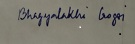 Bhagyalakhi Gogoi